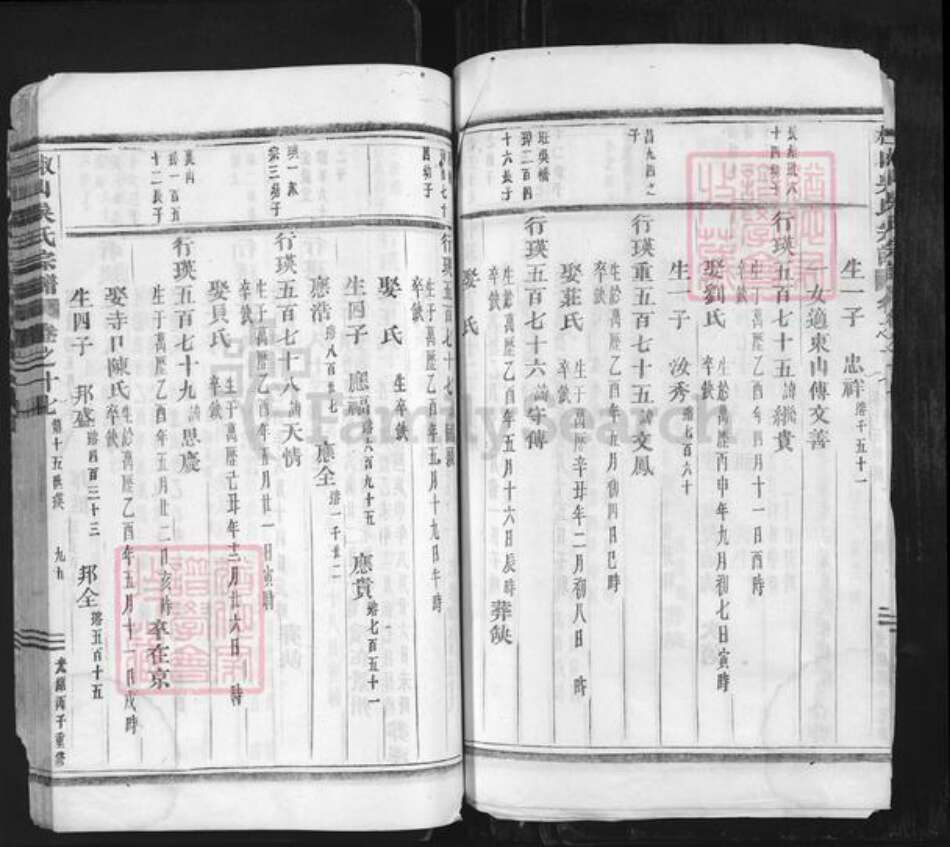 生一子　忠祥 瑢千五十一
一女適東山傳文善
行瑛五百七十五 諱 縱貴
生于萬歷乙酉年四月十一日酉時
卒缺
娶劉氏 生於萬歷丙申年九月初七日寅時
卒缺
生一子　汝秀 瑢七百六十
昌九四之
子
行瑛重五百七十五 諱 文鳳
生於萬歷乙酉年五月初四日巳時
卒缺
娶莊氏 生于萬歷辛丑年二月初八日 時
卒缺
班奐幡
珎二百四
十六長子
行瑛五百七十六 諱 守傳
生於萬歷乙酉年五月十六日辰時
卒缺
葬缺
娶　氏
四幼子
生于萬歷乙酉年五月十九日午時
卒缺
娶　氏 生卒缺
生四子　應福 瑢六百九十五　應貴 瑢七百五十一
應浩 瑢八百廿七　應全 瑢一千廿二
宗三幼子
行瑛五百七十八 諱 天情
生于萬歷乙酉年五月廿一日寅時
卒缺
娶貝氏 生于萬歷己丑年十二月廿六日 時
卒缺
十二長子
行瑛五百七十九 諱 思慶
生于萬歷乙酉年五月廿二日亥時
卒缺
卒在京
娶寺口陳氏 生於萬歷乙酉年五月十一日戌時
卒缺
生四子　邦盛 瑢四百三十三　邦全 瑢五百十五
椒山吳氏宗譜　卷之十七　第十五世瑛　九九　光緒丙子重修
FamilySearch